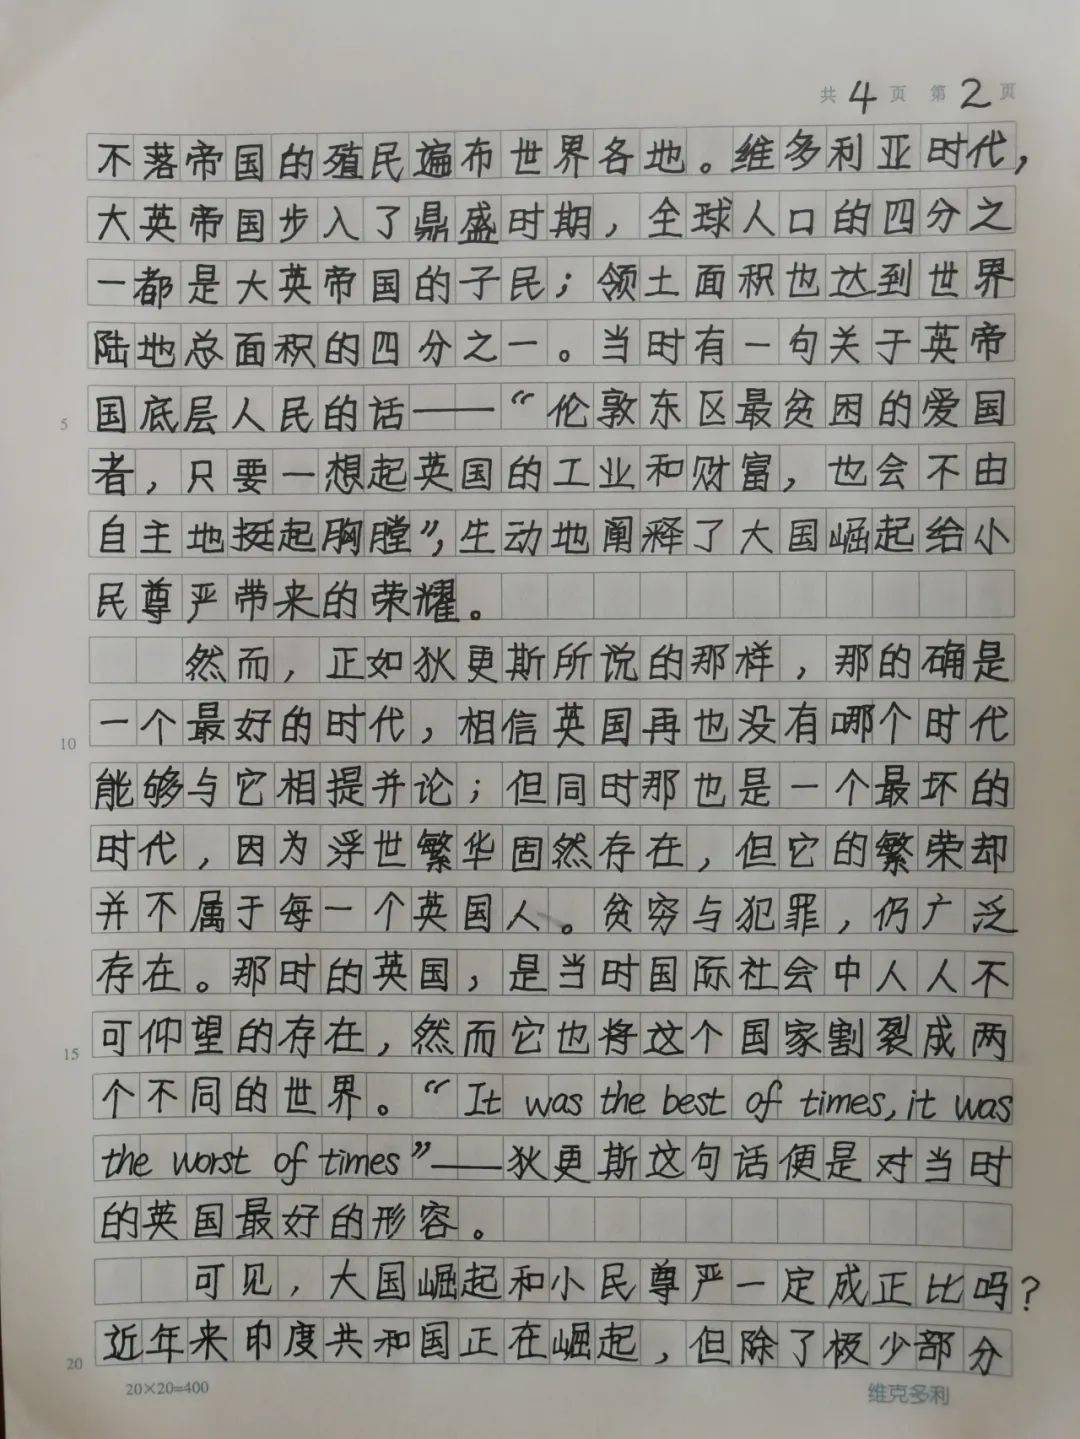 共 4 页 第 2 页
不落帝国的殖民遍布世界各地。维多利亚时代，
大英帝国步入了鼎盛时期，全球人口的四分之
一都是大英帝国的子民；领土面积也达到世界
陆地总面积的四分之一。当时有一句关于英帝
5 国底层人民的话——“伦敦东区最贫困的爱国
者，只要一想起英国的工业和财富，也会不由
自主地挺起胸膛”，生动地阐释了大国崛起给小
民尊严带来的荣耀。
然而，正如狄更斯所说的那样，那的确是
10 一个最好的时代，相信英国再也没有哪个时代
能够与它相提并论；但同时那也是一个最坏的
时代，因为浮世繁华固然存在，但它的繁荣却
并不属于每一个英国人。贫穷与犯罪，仍广泛
存在。那时的英国，是当时国际社会中人人不
15 可仰望的存在，然而它也将这个国家割裂成两
个不同的世界。“It was the best of times, it was
the worst of times”——狄更斯这句话便是对当时
的英国最好的形容。
可见，大国崛起和小民尊严一定成正比吗？
20 近年来印度共和国正在崛起，但除了极少部分
20×20=400 维克多利